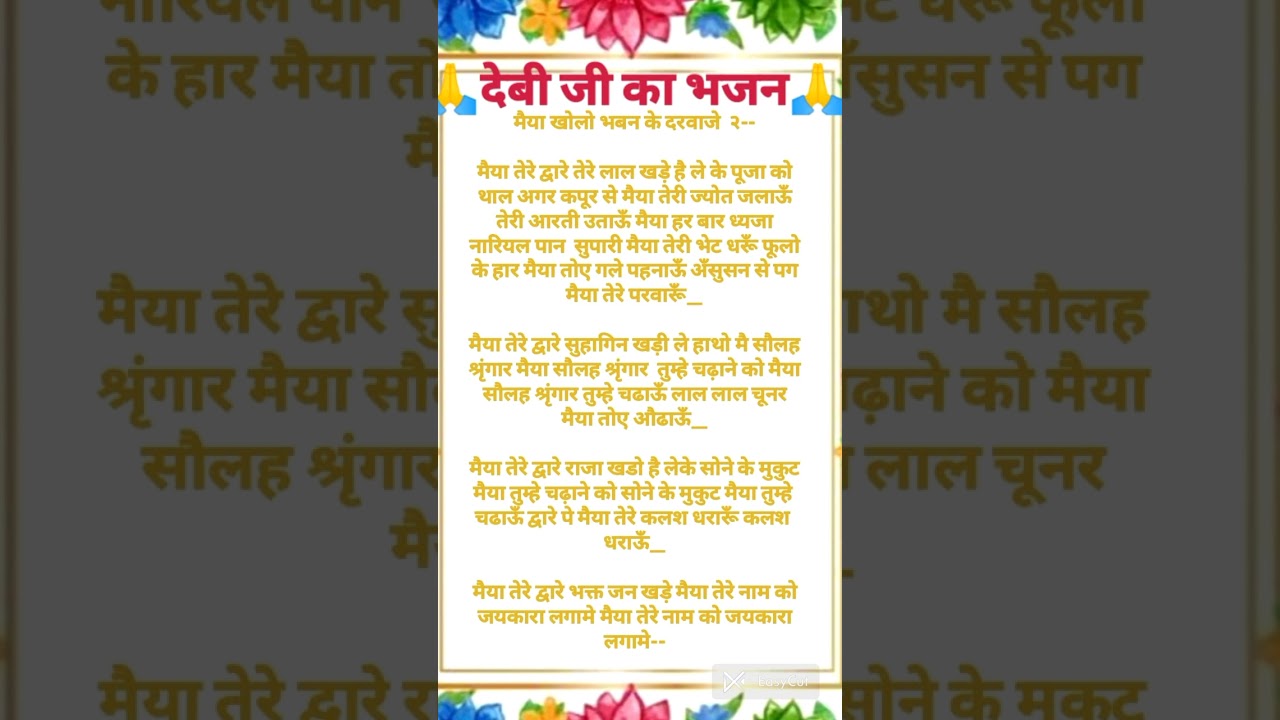 🙏देबी जी का भजन🙏
मैया खोलो भबन के दरवाजे २--
मैया तेरे द्वारे तेरे लाल खड़े है ले के पूजा को
थाल अगर कपूर से मैया तेरी ज्योत जलाऊँ
तेरी आरती उताऊँ मैया हर बार ध्यजा
नारियल पान सुपारी मैया तेरी भेट धरूँ फूलो
के हार मैया तोए गले पहनाऊँ अँसुसन से पग
मैया तेरे परवारूँ_
मैया तेरे द्वारे सुहागिन खड़ी ले हाथो मै सौलह
श्रृंगार मैया सौलह श्रृंगार तुम्हे चढ़ाने को मैया
सौलह श्रृंगार तुम्हे चढाऊँ लाल लाल चूनर
मैया तोए औढाऊँ_
मैया तेरे द्वारे राजा खडो है लेके सोने के मुकुट
मैया तुम्हे चढ़ाने को सोने के मुकुट मैया तुम्हे
चढाऊँ द्वारे पे मैया तेरे कलश धरारूँ कलश
धराऊँ_
मैया तेरे द्वारे भक्त जन खड़े मैया तेरे नाम को
जयकारा लगामे मैया तेरे नाम को जयकारा
लगामे--
EasyCut